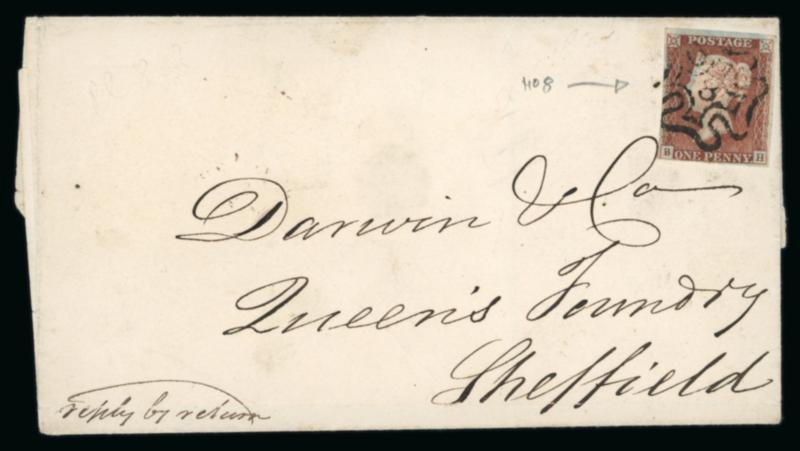 No8
POSTAGE
B ONE PENNY H
Darwin & Co
Queen's Foundry
Sheffield
reply by return